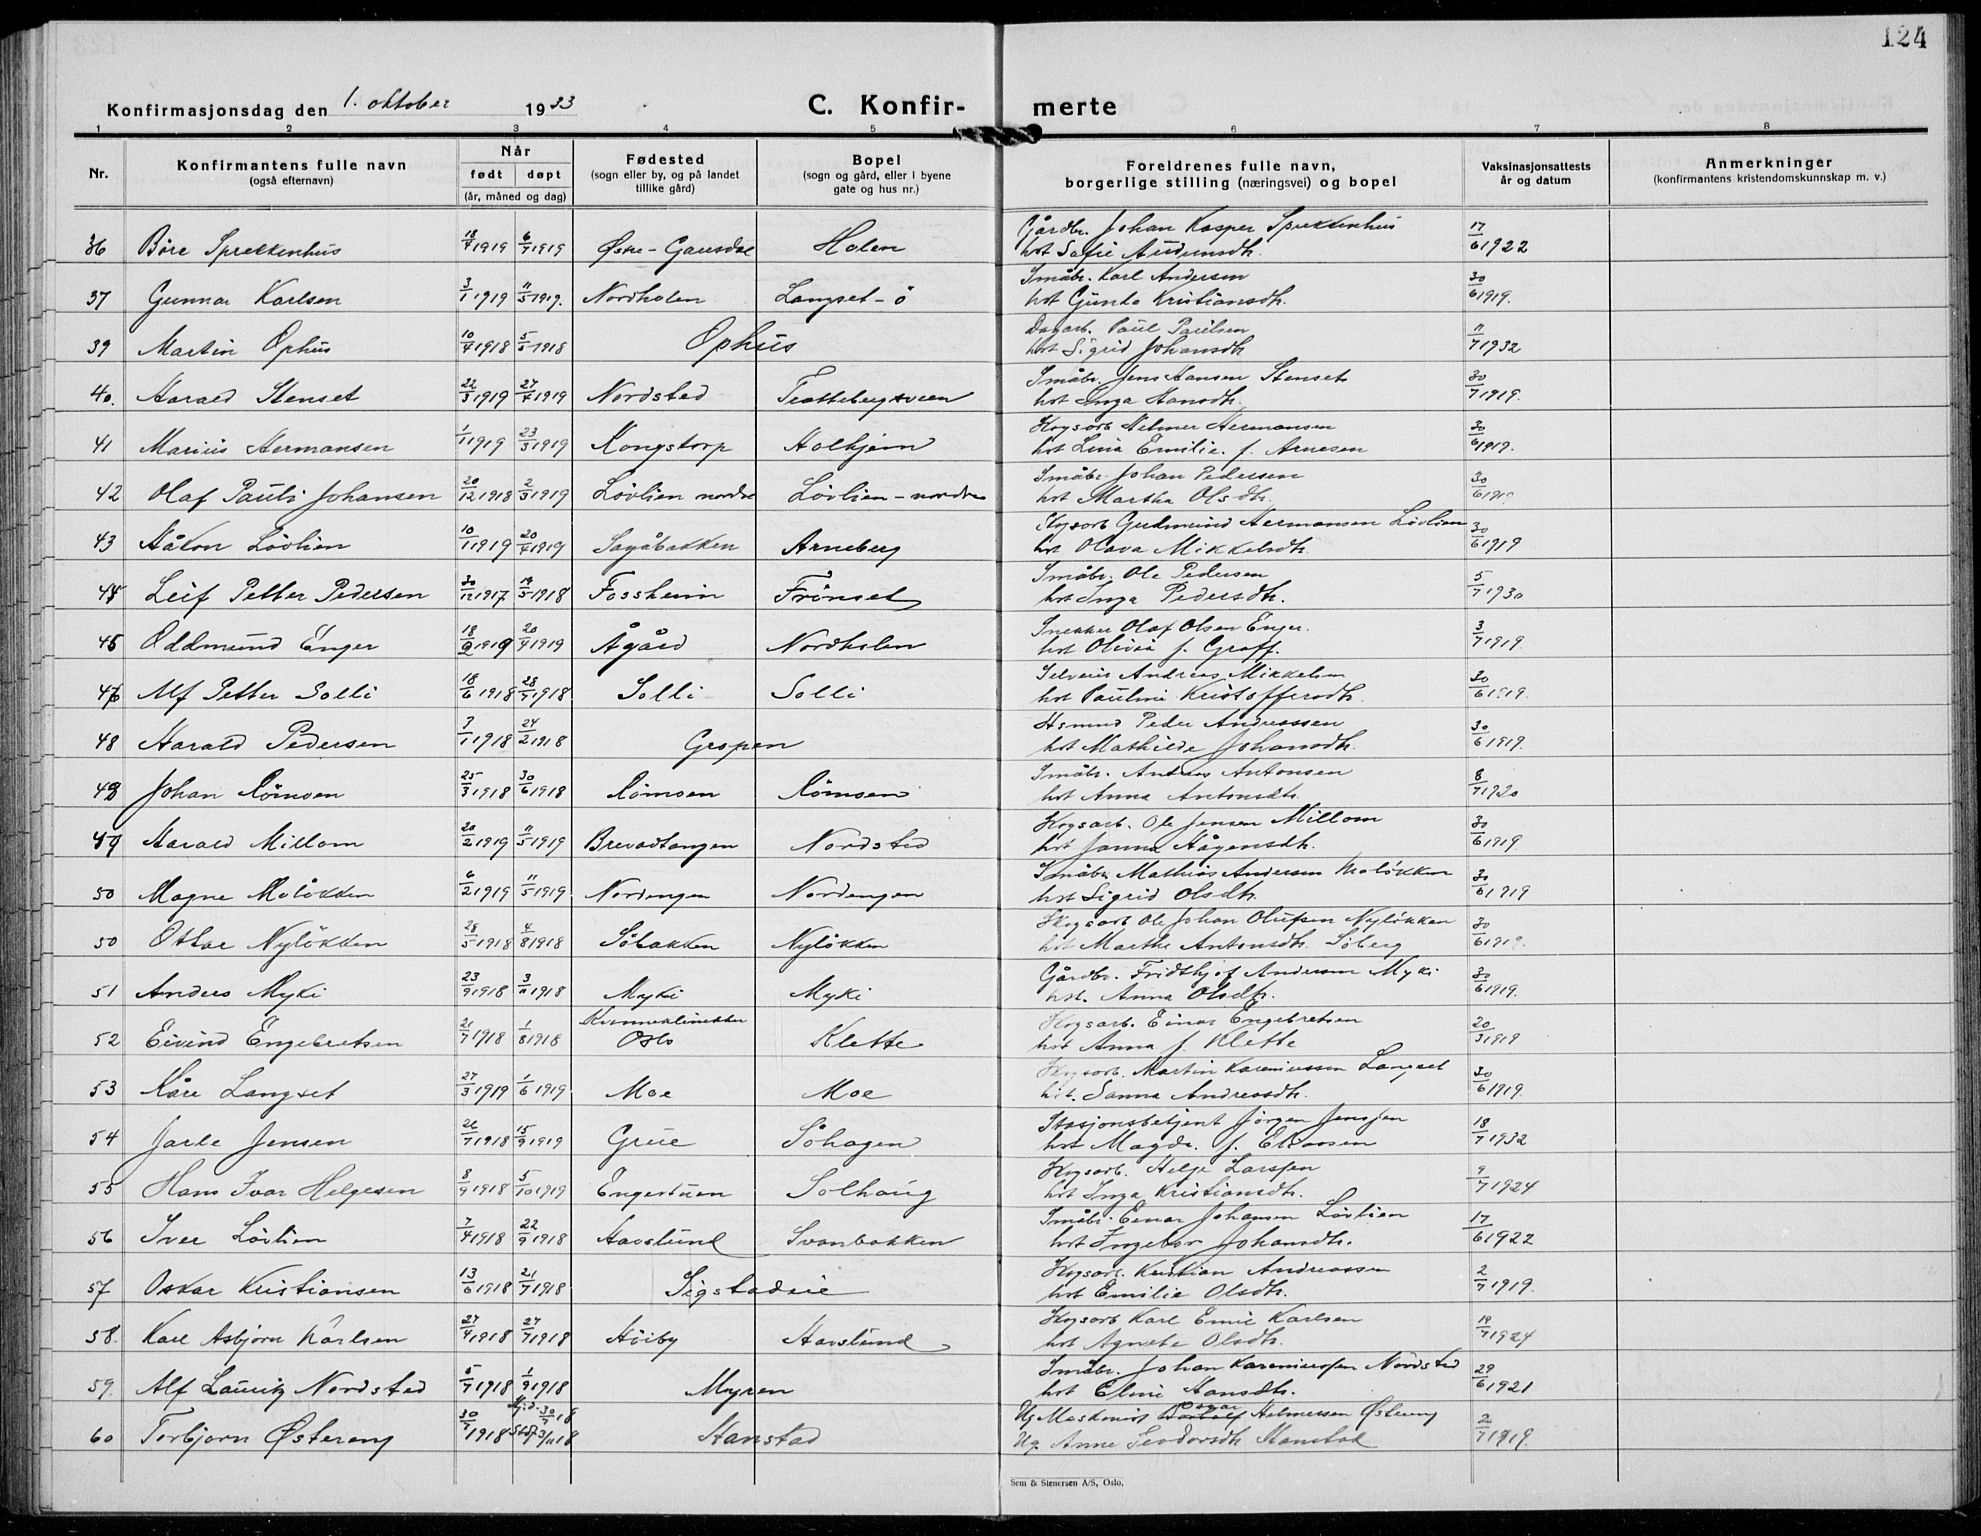 124
Konfirmasjonsdag den 1. oktober 1933
C. Konfir-merte
1 2 3 4 5 6 7 8
Nr.
Konfirmantens fulle navn
(også efternavn)
Når
født døpt
(år, måned og dag)
Fødested
(sogn eller by, og på landet
tillike gård)
Bopel
(sogn og gård, eller i byene
gate og hus nr.)
Foreldrenes fulle navn,
borgerlige stilling (næringsvei) og bopel
Vaksinasjonsattests
år og datum
Anmerkninger
(konfirmantens kristendomskunnskap m. v.)
Gårdbr. Johan Kasper Sprekkenhus
36 Båre Sprekkenhus 18/4 1919 6/7 1919 Østre-Gausdal Holen hst Sofie Andersdh. 17/6 1922
Småbr. Karl Andersen
37 Gunnar Karlsen 3/1 1919 11/5 1919. Nordholen Langset-ö hst Gunda Kristiansdh. 30/6 1919.
Dagarb. Paul Paulsen
39 Martin Ophus 10/4 1918 5/5 1918 Ophus hst Sigrid Johansdh 11/7 1932
Småbr. Jens Hansen Stenset
40. Harald Stenset 22/3 1919 27/4 1919 Nordsted Trottebergsveen hst Inga Hansdh. 30/7 1919.
Skogsarb Helmer Hermansen
41 Marius Hermansen 1/1 1919 23/3 1919 Kongstorp Holhjem hst Lina Emilie. f. Arnesen 30/6 1919.
Småbr. Johan Pedersen
42 Olaf Pauli Johansen 20/12 1918 2/3 1919 Lövlien nordre Lövlien-nordre hst Martha Olsdh. 30/6 1919
Skogsarb Gudmund Hermansen Lövlien
43 Håkon Lövlien 10/1 1919 20/4 1919 Sagåbakken Arneberg hst Olava Mikkelsdh. 30/6 1919
Småbr. Ole Pedersen
44 Leif Petter Pedersen 30/12 1917 19/5 1918 Fossheim Frönset hst Inga Pedersdh. 5/7 1930
Snekker Olaf Olsen Enger.
45 Oddmund Enger 18/2 1919 20/4 1919 Ågård Nordholen hst Olivia f. Graff. 3/7 1919.
Selveier Andreas Mikkelsen
46 Alf Petter Solli 18/6 1918 28/7 1918 Solli Solli hst Pauline Kristoffersdh. 30/6 1919.
Hsmand Peder Andreassen
48 Harald Pedersen 7/1 1918 24/2 1918 Gropen hst Mathilde Johansdh. 30/6 1919.
Småbr. Anders Antonsen
48 Johan Römoen 25/3 1918 30/6 1918 Römoen Römoen hst Anna Antonsdh. 8/7 1920
Skogsarb. Ole Jensen Millom
49 Harald Millom 20/2 1919 11/5 1919 Brevadtangen Nordsted hst Janna Hågensdh. 30/6 1919
Småbr. Mathias Andersen Molökken
50 Magne Molökken 6/2 1919 11/5 1919. Nordengen Nordengen hst Sigrid Olsdh. 30/6 1919
Skogsarb Ole Johan Olufsen Nylökken
50 Ottar Nylökken 28/5 1918 4/8 1918 Söbakken Nylökken hst Marthe Antonsdh. Söberg 30/6 1919.
Gårdbr. Fridthjof Andersen Myki
51 Anders Myki 23/9 1918 3/11 1918 Myki Myki hst. Anna Olsdh. 30/6 1919.
Kvinneklinikken Skogsarb. Einar Engebretsen
52 Eivind Engebretsen 21/7 1918 1/8 1918 Oslo Klette hst Anna f. Klette 20/3 1919
Skogsarb. Martin Kareniussen Langset
53 Kåre Langset 27/3 1919 1/6 1919. Moe Moe hst. Sanna Andreasdh. 30/6 1919.
Stasjonsbetjent Jörgen Jenssen
54 Jarle Jensen 26/7 1918 15/9 1919 Grue Söhagen hst Magda f. Eliassen 18/7 1932
Skogsarb. Helge Larssen
55 Hans Ivar Helgesen 8/9 1918 5/10 1919 Engerstuen Solhaug hst Inga Kristiansdh. 9/7 1924
Småbr. Einar Johansen Lövlien
56 Iver Lövlien 7/4 1918 22/9 1918 Havslund Svanbakken hst Ingebor Johansdh. 17/6 1922
Skogsarb. Kristian Andreassen
57 Oskar Kristiansen 13/6 1918 21/7 1918 Sigstadeie hst Emilie Olsdh. 2/7 1919.
Skogsarb Karl Emil Karlsen
58. Karl Asbjørn Karlsen 27/4 1918 27/7 1918 Höiby Havslund hst Agnete Olsdh. 19/7 1924
Småbr. Johan Kareniussen Nordsted
59. Alf Lauritz Nordsted 5/7 1918 1/9 1918 Myren hst Eline Hansdh. 29/6 1921
Hj.d. 30/7 18 Ug Maskinist Ragnar Helmersen Østereng
60 Torbjørn Østereng 30/7 1918 St.d. 3/11 18 Hanstad Ug. Anne Teodorsdh Hanstad 2/7 1919.
Sem & Stenersen A/S, Oslo.